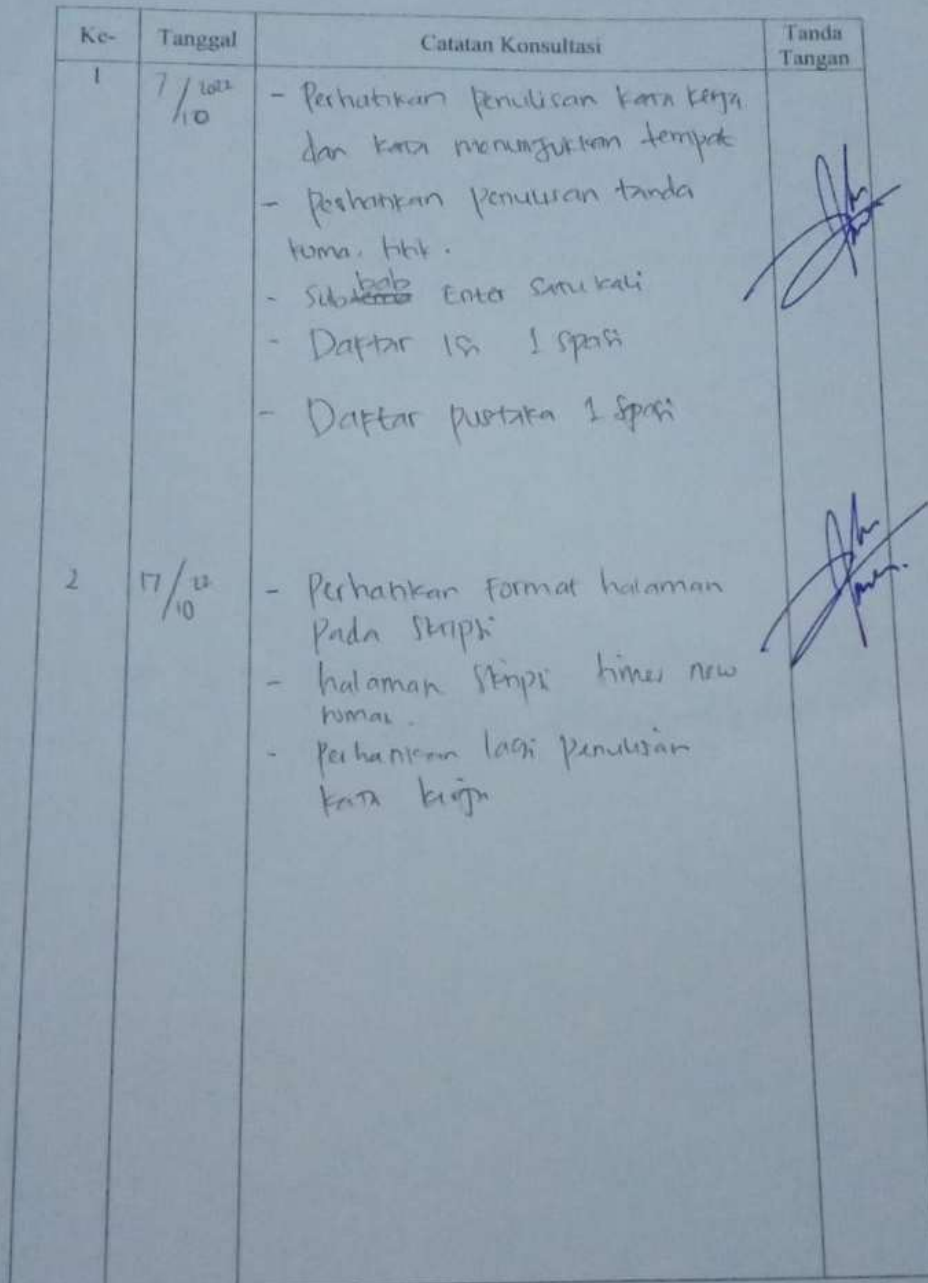 Ke- Tanggal Catatan Konsultasi Tanda Tangan
1 7/10 2022 - Perhatikan penulisan kata kerja
dan kata menunjukkan tempat
- Perhatikan penulisan tanda
koma, titik.
- Sub bab Enter satu kali
- Daftar isi 1 spasi
- Daftar pustaka 1 spasi
2 17/10 22 - Perhatikan format halaman
pada skripsi
- halaman skripsi times new
roman.
- Perhatikan lagi penulisan
kata kerja